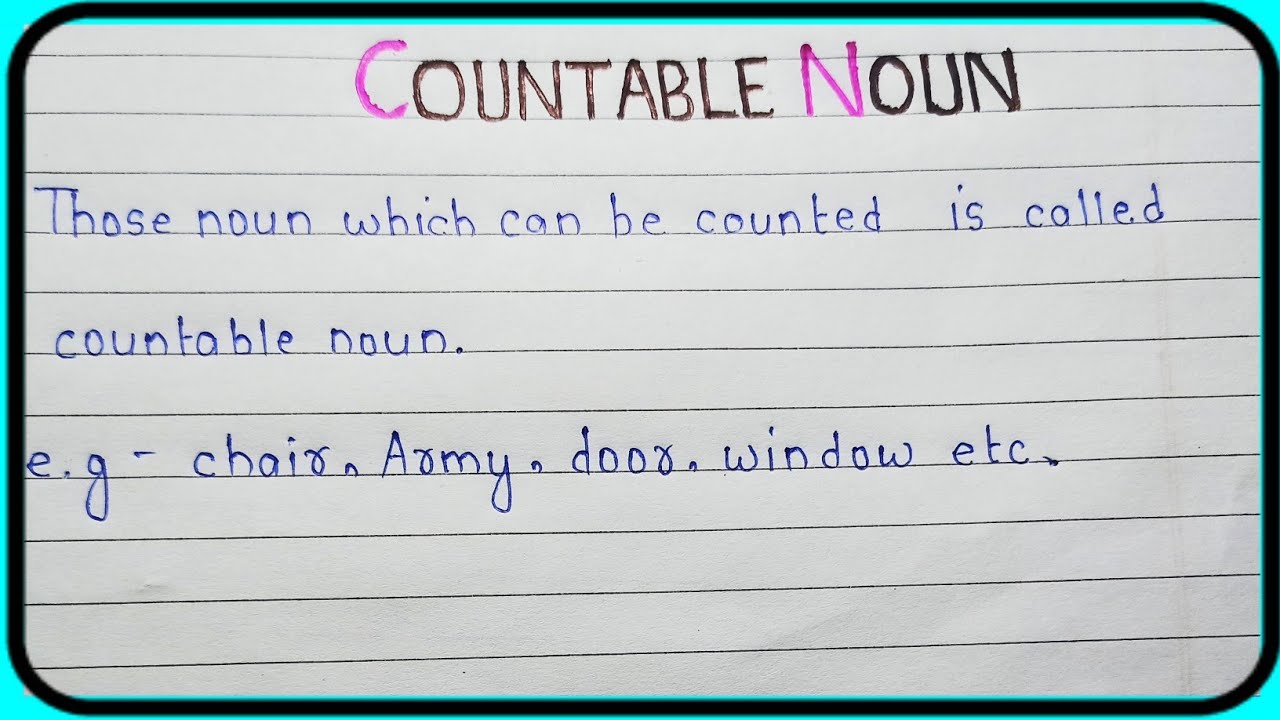 COUNTABLE NOUN
Those noun which can be counted is called
countable noun.
e.g - chair, Army, door, window etc.